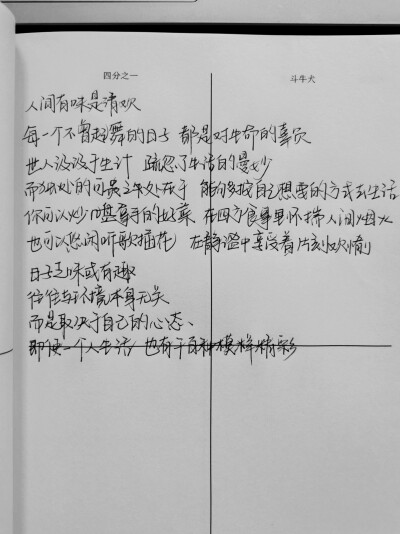 四分之一
斗牛犬
人间有味是清欢
每一个不曾起舞的日子 都是对生命的辜负
世人汲汲于生计 疏忽了生活的曼妙
而独处的可贵之处在于 能够按自己想要的方式去生活
你可以炒几盘拿手的好菜 在四方食事里怀揣人间烟火
也可以悠闲听歌插花 在静谧中享受着片刻欢愉
日子乏味或有趣
往往与环境本身无关
而是取决于自己的心态、
即便一个人生活 也有千百种模样精彩